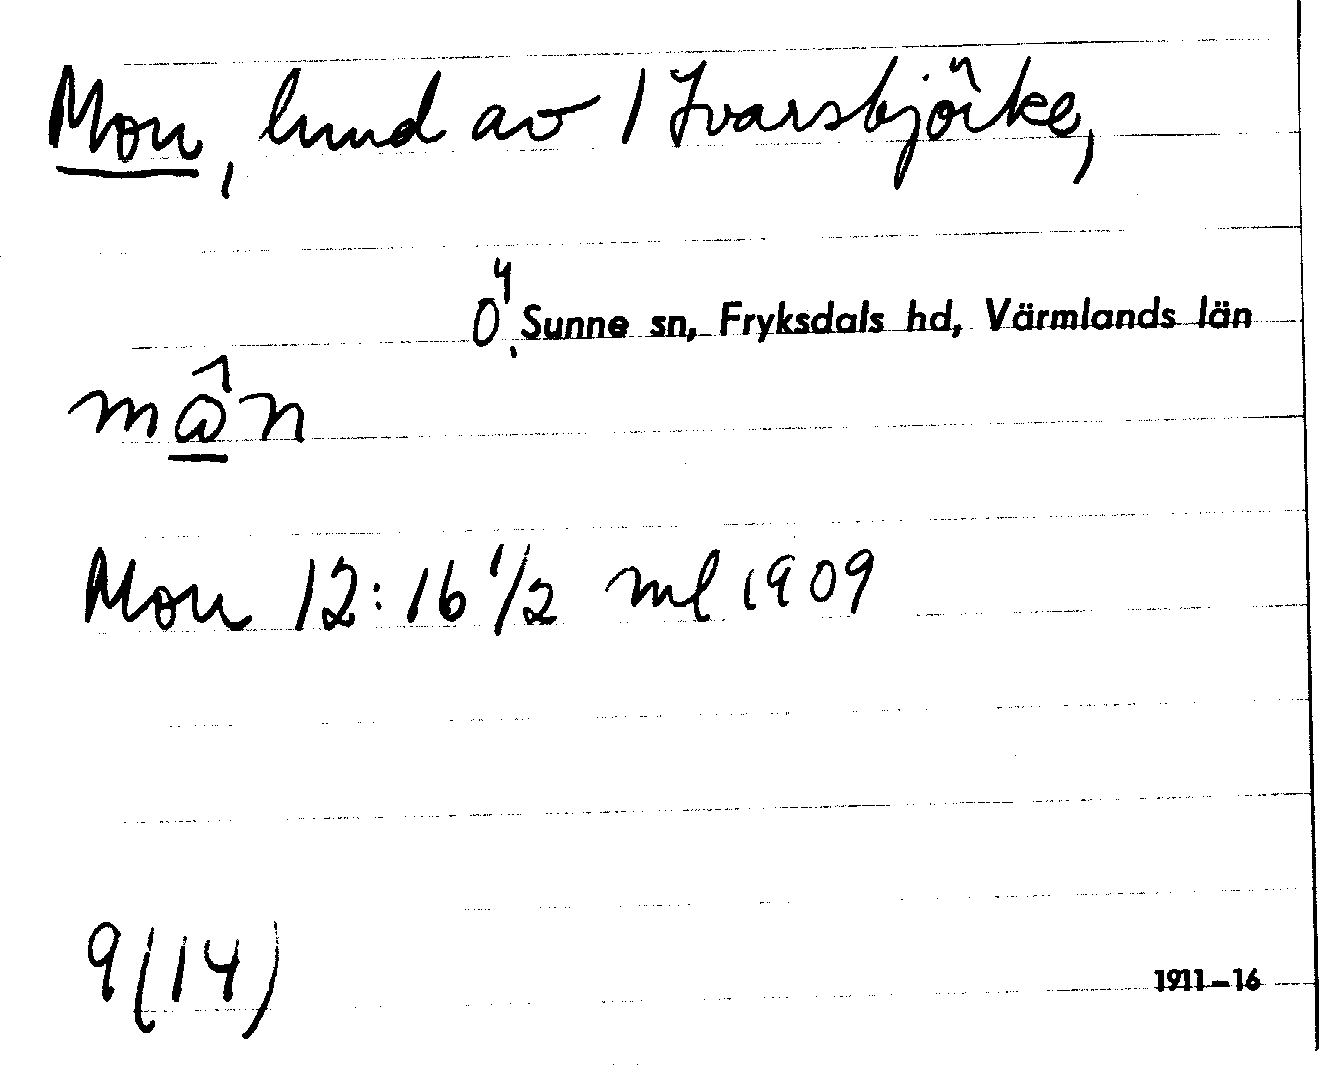 Mon, lund av 1 Ivarsbjörke,
Ö, Sunne sn, Fryksdals hd, Värmlands län
Mon 12:16 1/2 ml 1909
9(14)
1911–16